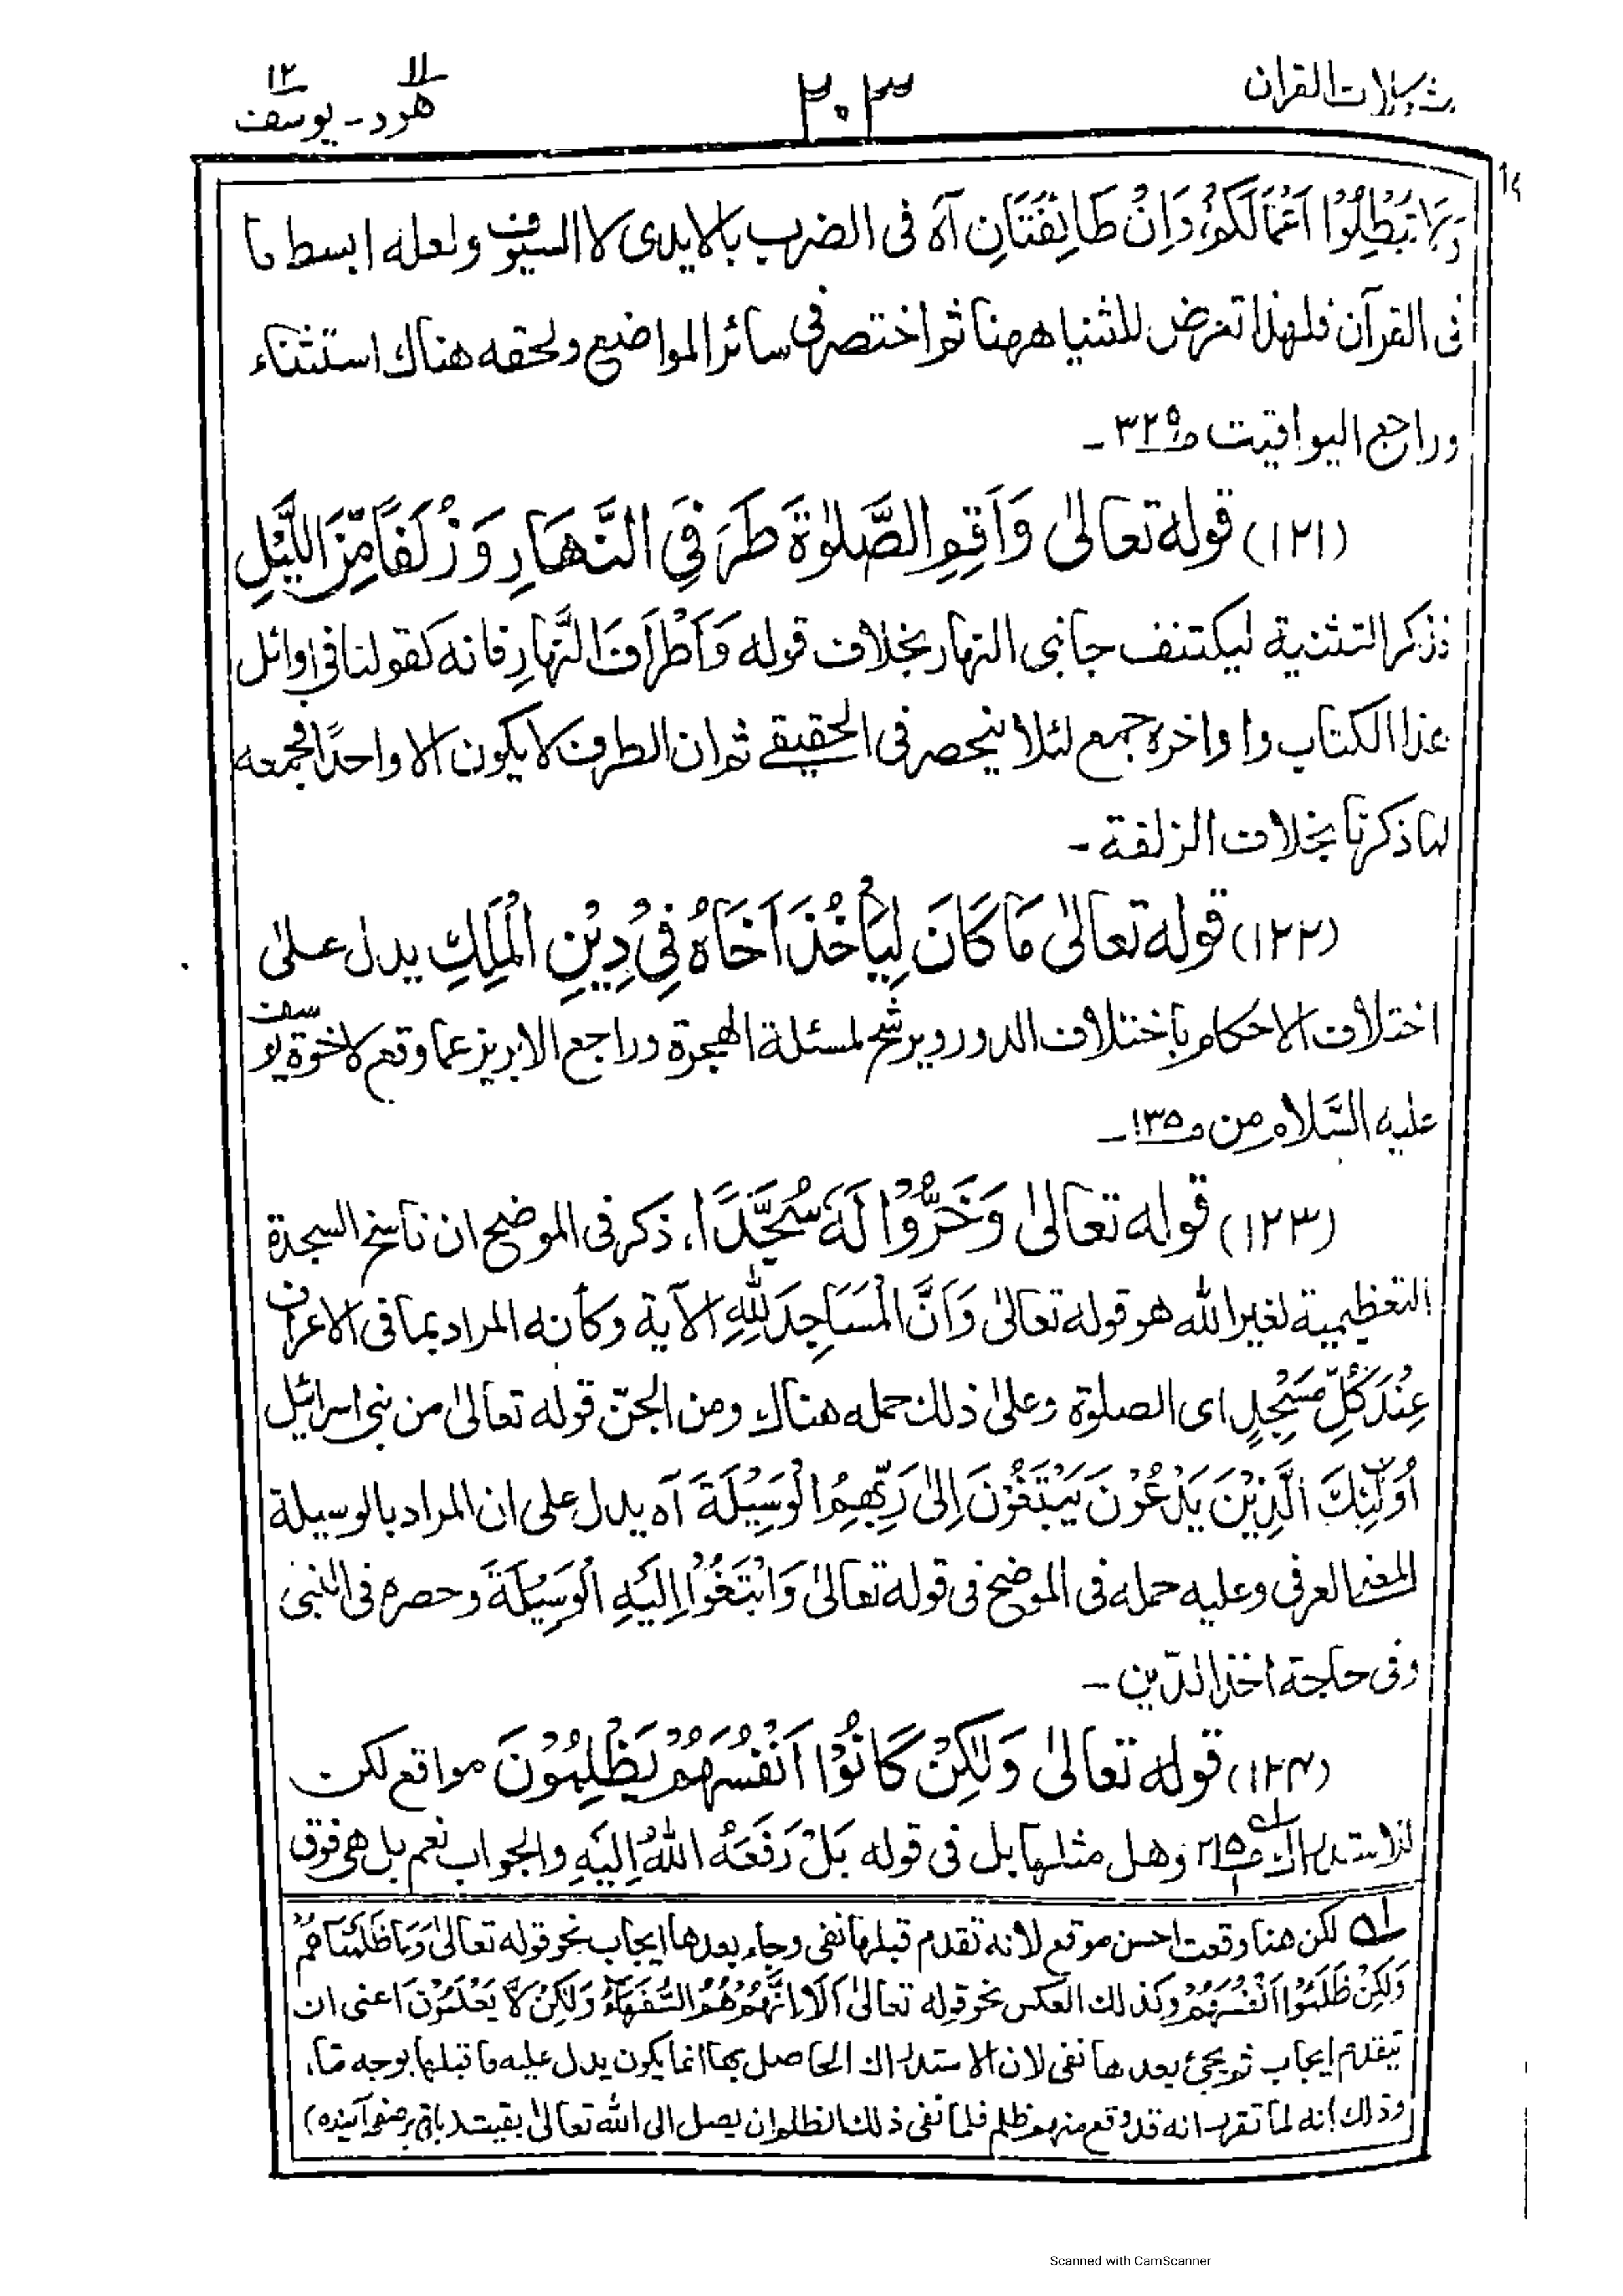 مشكلات القرآن ٢٠٣ ١١ ١٢
هود - يوسف
وَلَا تُبْطِلُوْا اَعْمَالَكُمْ، وَاِنْ طَائِفَتَانِ آه فى الضرب بالايدى لا السيوف ولعله ابسط ما
فى القرآن فلهذا تعرض للثنيا ههنا ثم اختصر فى سائر المواضيع ولحقه هناك استثناء
وراجع اليواقيت ص٣٢٩ -
(١٢١) قوله تعالىٰ وَاَقِمِ الصَّلوٰةَ طَرَفَيِ النَّهَارِ وَزُلَفًا مِّنَ اللَّيْلِ
ذكر التثنية ليكتنف جانبى النهار بخلاف قوله وَاَطْرَافَ النَّهَارِ فانه كقولنا فى اوائل
هذا الكتاب واواخره جمع لئلا ينحصر فى الحقيقے ثم ان الطرف لا يكون الا واحدًا فجمعه
لما ذكرنا بخلاف الزلفة -
(١٢٢) قوله تعالىٰ مَا كَانَ لِيَأْخُذَ اَخَاهُ فِيْ دِيْنِ الْمَلِكِ يدل علىٰ
اختلاف الاحكام باختلاف الدور ويرشح لمسئلة الهجرة وراجع الابريز عما وقع لاخوة يوسف
عليه السَّلام من ص١٣٥ -
(١٢٣) قوله تعالىٰ وَخَرُّوْا لَهٗ سُجَّدًا، ذكر فى الموضح ان ناسخ السجدة
التعظيمية لغير الله هو قوله تعالىٰ وَاَنَّ الْمَسَاجِدَ لِلّٰهِ الآية وكأنه المراد بما فى الاعراف
عِنْدَ كُلِّ مَسْجِدٍ اى الصلوة وعلىٰ ذلك حمله هناك ومن الجنّ قوله تعالىٰ من بنى اسرائيل
اُولٰٓئِكَ الَّذِيْنَ يَدْعُوْنَ يَبْتَغُوْنَ اِلىٰ رَبِّهِمُ الْوَسِيْلَةَ آه يدل على ان المراد بالوسيلة
المعنى العرفى وعليه حمله فى الموضح فى قوله تعالىٰ وَابْتَغُوْا اِلَيْهِ الْوَسِيْلَةَ وحصره فى النبى
وفى حاجة اخذ الدّين -
(١٢٤) قوله تعالىٰ وَلٰكِنْ كَانُوْا اَنْفُسَهُمْ يَظْلِمُوْنَ مواقع لكن
للاستدراك لـه وهل مثلها بل فى قوله بَلْ رَفَعَهُ اللّٰهُ اِلَيْهِ والجواب نعم بل هى فوق
لـه لكن هنا وقعت احسن موقع لانه تقدم قبلها نفى وجاء بعدها ايجاب نحو قوله تعالىٰ وَمَا ظَلَمْنَاهُمْ
وَلٰكِنْ ظَلَمُوْا اَنْفُسَهُمْ وكذلك العكس نحو قوله تعالىٰ اَلَا اِنَّهُمْ هُمُ السُّفَهَآءُ وَلٰكِنْ لَّا يَعْلَمُوْنَ اعنى ان
يتقدم ايجاب ثم يجئ بعدها نفى لان الاستدراك الحاصل بها انما يكون يدل عليه ما قبلها بوجه ما،
وذلك انه لما تقرر انه قد وقع منهم ظلم فلما نفى ذلك الظلم ان يصل الى الله تعالىٰ بقيت (باقى بر صفحه آئنده)
Scanned with CamScanner